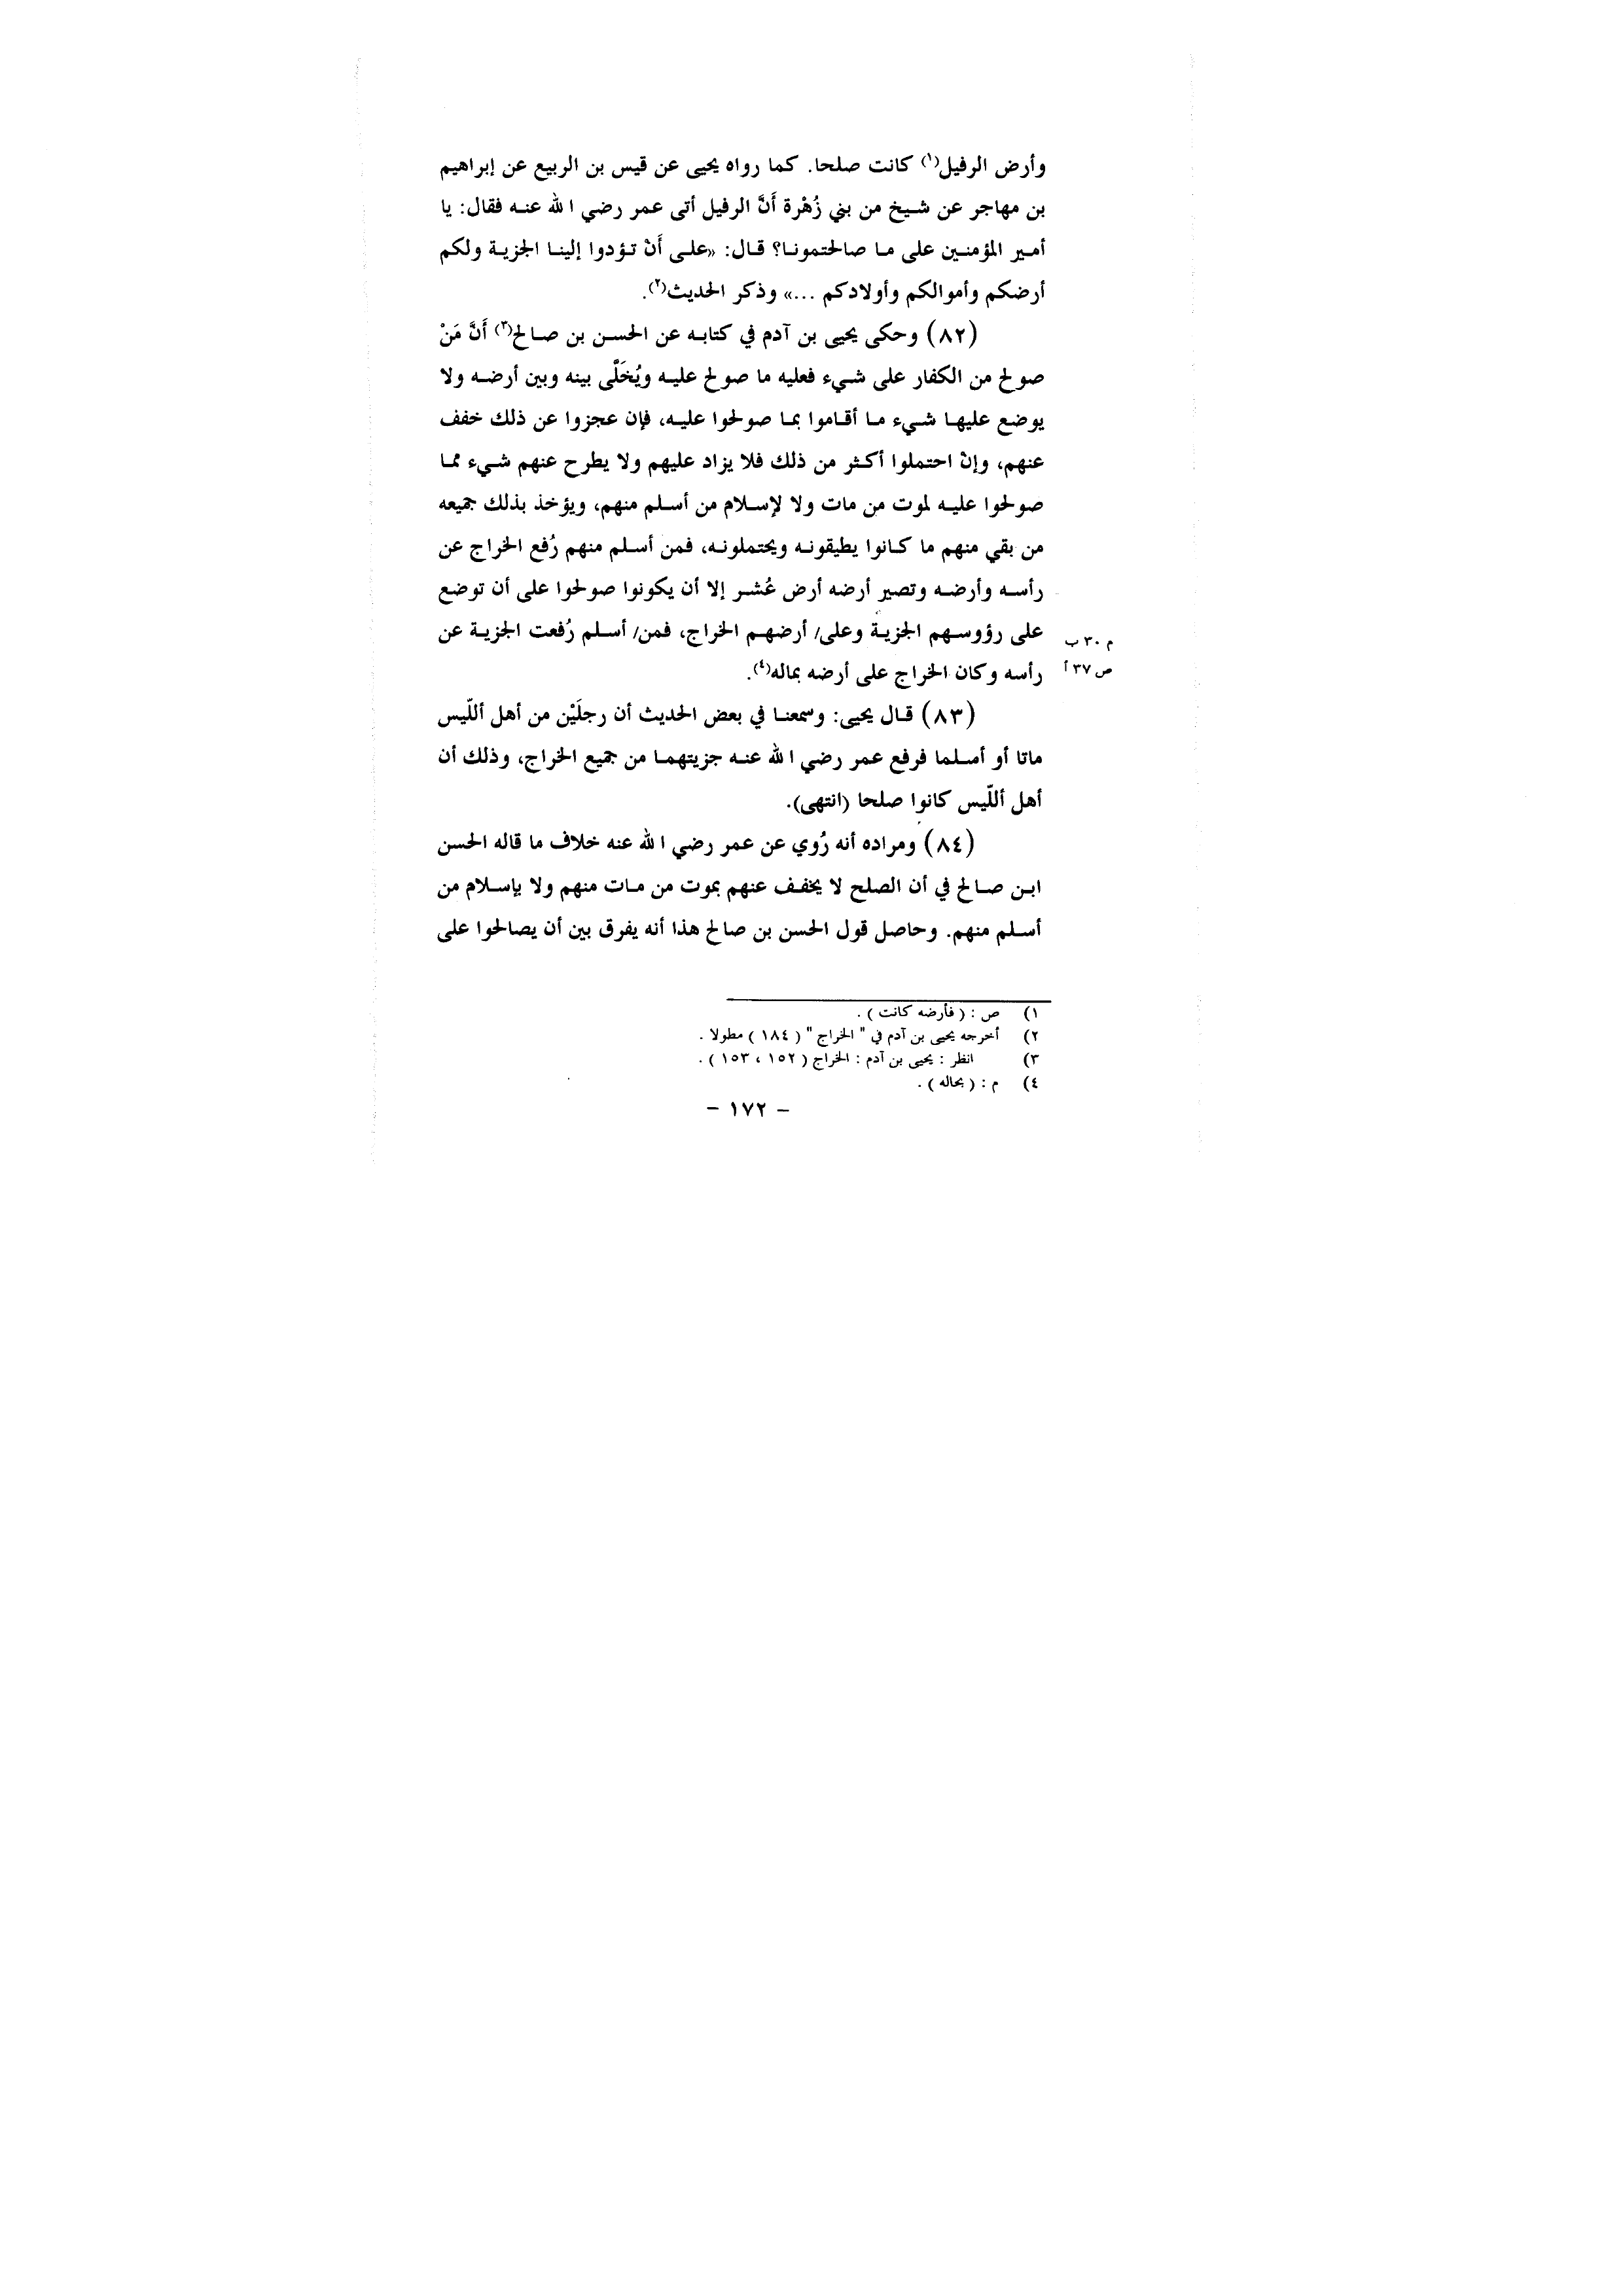 وأرض الرفيل(١) كانت صلحا. كما رواه يحيى عن قيس بن الربيع عن إبراهيم
بن مهاجر عن شيخ من بني زُهْرة أَنَّ الرفيل أتى عمر رضي الله عنه فقال: يا
أمير المؤمنين على ما صالحتمونا؟ قال: «على أَنْ تؤدوا إلينا الجزية ولكم
أرضكم وأموالكم وأولادكم ...» وذكر الحديث(٢).
(٨٢) وحكى يحيى بن آدم في كتابه عن الحسن بن صالح(٣) أَنَّ مَنْ
صولح من الكفار على شيء فعليه ما صولح عليه ويُخَلَّى بينه وبين أرضه ولا
يوضع عليها شيء ما أقاموا بما صولحوا عليه، فإن عجزوا عن ذلك خفف
عنهم، وإنْ احتملوا أكثر من ذلك فلا يزاد عليهم ولا يطرح عنهم شيء مما
صولحوا عليه لموت من مات ولا لإسلام من أسلم منهم، ويؤخذ بذلك جميعه
من بقي منهم ما كانوا يطيقونه ويحتملونه، فمن أسلم منهم رُفع الخراج عن
رأسه وأرضه وتصير أرضه أرض عُشر إلا أن يكونوا صولحوا على أن توضع
على رؤوسهم الجزية وعلى/ أرضهم الخراج، فمن/ أسلم رُفعت الجزية عن
م ٣٠ ب
رأسه وكان الخراج على أرضه بماله(٤).
ص ٣٧ أ
(٨٣) قال يحيى: وسمعنا في بعض الحديث أن رجلَيْن من أهل أللّيس
ماتا أو أسلما فرفع عمر رضي الله عنه جزيتهما من جميع الخراج، وذلك أن
أهل أللّيس كانوا صلحا (انتهى).
(٨٤) ومراده أنه رُوي عن عمر رضي الله عنه خلاف ما قاله الحسن
ابن صالح في أن الصلح لا يخفف عنهم بموت من مات منهم ولا بإسلام من
أسلم منهم. وحاصل قول الحسن بن صالح هذا أنه يفرق بين أن يصالحوا على
١) ص : ( فأرضه كانت ) .
٢) أخرجه يحيى بن آدم في " الخراج " ( ١٨٤ ) مطولا .
٣) انظر : يحيى بن آدم : الخراج ( ١٥٢ ، ١٥٣ ) .
٤) م : ( بحاله ) .
– ١٧٢ –